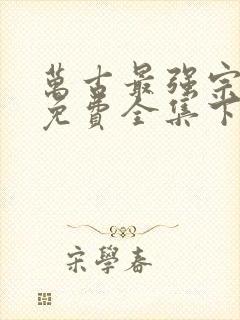 萬古最强宗
免費全集下
宋學春